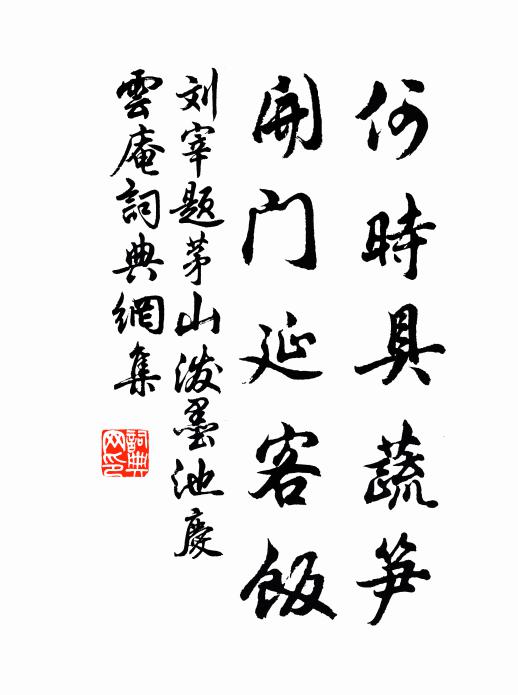 何時具蔬笋
開門延客飯
刘宰題茅山潑墨池慶
雲庵詞典網集
詞典
网印